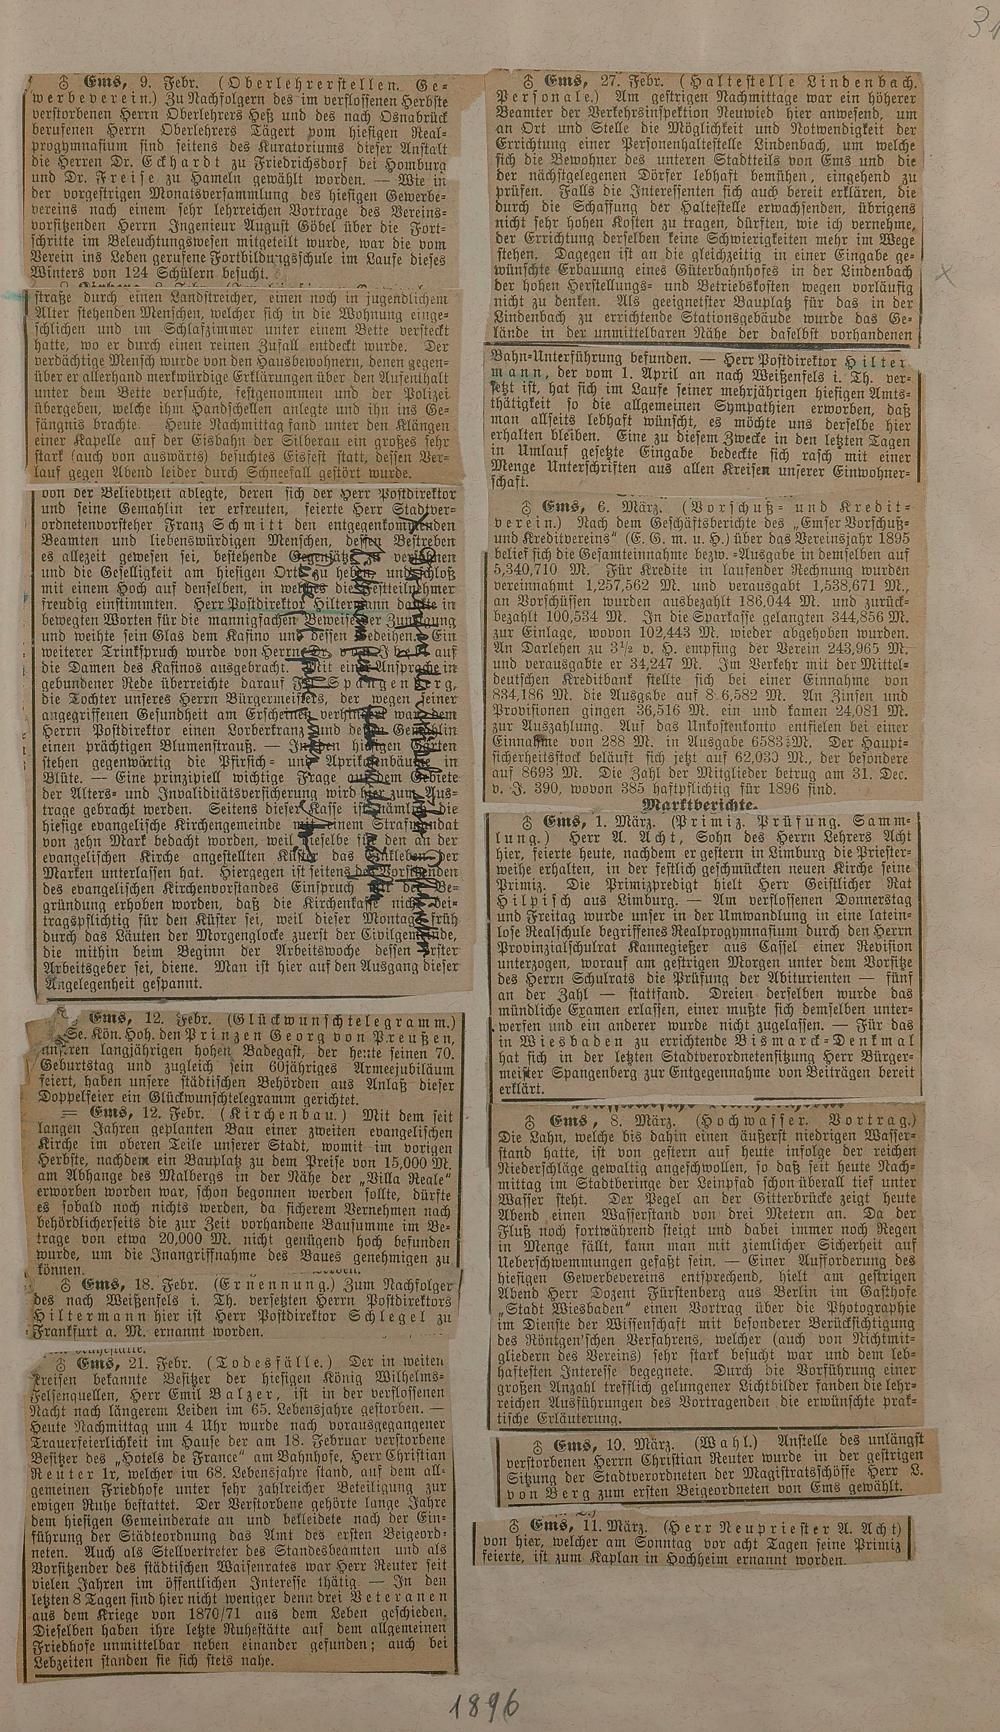 31
♁ Ems, 9. Febr. (Oberlehrerstellen. Ge-
werbeverein.) Zu Nachfolgern des im verflossenen Herbste
verstorbenen Herrn Oberlehrers Heß und des nach Osnabrück
berufenen Herrn Oberlehrers Tägert vom hiesigen Real-
progymnasium sind seitens des Kuratoriums dieser Anstalt
die Herren Dr. Eckhardt zu Friedrichsdorf bei Homburg
und Dr. Freise zu Hameln gewählt worden. — Wie in
der vorgestrigen Monatsversammlung des hiesigen Gewerbe-
vereins nach einem sehr lehrreichen Vortrage des Vereins-
vorsitzenden Herrn Ingenieur August Göbel über die Fort-
schritte im Beleuchtungswesen mitgeteilt wurde, war die vom
Verein ins Leben gerufene Fortbildungsschule im Laufe dieses
Winters von 124 Schülern besucht.
straße durch einen Landstreicher, einen noch in jugendlichem
Alter stehenden Menschen, welcher sich in die Wohnung einge-
schlichen und im Schlafzimmer unter einem Bette versteckt
hatte, wo er durch einen reinen Zufall entdeckt wurde. Der
verdächtige Mensch wurde von den Hausbewohnern, denen gegen-
über er allerhand merkwürdige Erklärungen über den Aufenthalt
unter dem Bette versuchte, festgenommen und der Polizei
übergeben, welche ihm Handschellen anlegte und ihn ins Ge-
fängnis brachte. Heute Nachmittag fand unter den Klängen
einer Kapelle auf der Eisbahn der Silberau ein großes sehr
stark (auch von auswärts) besuchtes Eisfest statt, dessen Ver-
lauf gegen Abend leider durch Schneefall gestört wurde.
von der Beliebtheit ablegte, deren sich der Herr Postdirektor
und seine Gemahlin hier erfreuten, feierte Herr Stadtver-
ordnetenvorsteher Franz Schmitt den entgegenkommenden
Beamten und liebenswürdigen Menschen, dessen Bestreben
es allezeit gewesen sei, bestehende Gegensätze zu versöhnen
und die Geselligkeit am hiesigen Orte zu heben und schloß
mit einem Hoch auf denselben, in welches die Festteilnehmer
freudig einstimmten. Herr Postdirektor Hiltermann dankte in
bewegten Worten für die mannigfachen Beweise der Zuneigung
und weihte sein Glas dem Kasino und dessen Gedeihen. Ein
weiterer Trinkspruch wurde von Herrn Dr. auf
die Damen des Kasinos ausgebracht. Mit einer Ansprache in
gebundener Rede überreichte darauf Frl. Spangenberg,
die Tochter unseres Herrn Bürgermeisters, der wegen seiner
angegriffenen Gesundheit am Erscheinen verhindert war, dem
Herrn Postdirektor einen Lorbeerkranz und der Gemahlin
einen prächtigen Blumenstrauß. — In den hiesigen Gärten
stehen gegenwärtig die Pfirsich- und Aprikosenbäume in
Blüte. — Eine prinzipiell wichtige Frage auf dem Gebiete
der Alters- und Invaliditätsversicherung wird hier zum Aus-
trage gebracht werden. Seitens dieser Kasse ist nämlich die
hiesige evangelische Kirchengemeinde mit einem Strafmandat
von zehn Mark bedacht worden, weil dieselbe für den an der
evangelischen Kirche angestellten Küster das Einkleben der
Marken unterlassen hat. Hiergegen ist seitens des Vorsitzenden
des evangelischen Kirchenvorstandes Einspruch mit der Be-
gründung erhoben worden, daß die Kirchenkasse nicht bei-
tragspflichtig für den Küster sei, weil dieser Montags früh
durch das Läuten der Morgenglocke zuerst der Civilgemeinde,
die mithin beim Beginn der Arbeitswoche dessen erster
Arbeitsgeber sei, diene. Man ist hier auf den Ausgang dieser
Angelegenheit gespannt.
Ems, 12. Febr. (Glückwunschtelegramm.)
Se. Kön. Hoh. den Prinzen Georg von Preußen,
unseren langjährigen hohen Badegast, der heute seinen 70.
Geburtstag und zugleich sein 60jähriges Armeejubiläum
feiert, haben unsere städtischen Behörden aus Anlaß dieser
Doppelfeier ein Glückwunschtelegramm gerichtet.
= Ems, 12. Febr. (Kirchenbau.) Mit dem seit
langen Jahren geplanten Bau einer zweiten evangelischen
Kirche im oberen Teile unserer Stadt, womit im vorigen
Herbste, nachdem ein Bauplatz zu dem Preise von 15,000 M.
am Abhange des Malbergs in der Nähe der „Villa Reale“
erworben worden war, schon begonnen werden sollte, dürfte
es sobald noch nichts werden, da sicherem Vernehmen nach
behördlicherseits die zur Zeit vorhandene Bausumme im Be-
trage von etwa 20,000 M. nicht genügend hoch befunden
wurde, um die Inangriffnahme des Baues genehmigen zu
können.
♁ Ems, 18. Febr. (Ernennung.) Zum Nachfolger
des nach Weißenfels i. Th. versetzten Herrn Postdirektors
Hiltermann hier ist Herr Postdirektor Schlegel zu
Frankfurt a. M. ernannt worden.
♁ Ems, 21. Febr. (Todesfälle.) Der in weiten
Kreisen bekannte Besitzer der hiesigen König Wilhelms-
Felsenquellen, Herr Emil Balzer, ist in der verflossenen
Nacht nach längerem Leiden im 65. Lebensjahre gestorben. —
Heute Nachmittag um 4 Uhr wurde nach vorausgegangener
Trauerfeierlichkeit im Hause der am 18. Februar verstorbene
Besitzer des „Hotels de France“ am Bahnhofe, Herr Christian
Reuter 1r, welcher im 68. Lebensjahre stand, auf dem all-
gemeinen Friedhofe unter sehr zahlreicher Beteiligung zur
ewigen Ruhe bestattet. Der Verstorbene gehörte lange Jahre
dem hiesigen Gemeinderate an und bekleidete nach der Ein-
führung der Städteordnung das Amt des ersten Beigeord-
neten. Auch als Stellvertreter des Standesbeamten und als
Vorsitzender des städtischen Waisenrates war Herr Reuter seit
vielen Jahren im öffentlichen Interesse thätig — In den
letzten 8 Tagen sind hier nicht weniger denn drei Veteranen
aus dem Kriege von 1870/71 aus dem Leben geschieden.
Dieselben haben ihre letzte Ruhestätte auf dem allgemeinen
Friedhofe unmittelbar neben einander gefunden; auch bei
Lebzeiten standen sie sich stets nahe.
♁ Ems, 27. Febr. (Haltestelle Lindenbach.
Personale.) Am gestrigen Nachmittage war ein höherer
Beamter der Verkehrsinspektion Neuwied hier anwesend, um
an Ort und Stelle die Möglichkeit und Notwendigkeit der
Errichtung einer Personenhaltestelle Lindenbach, um welche
sich die Bewohner des unteren Stadtteils von Ems und die
der nächstgelegenen Dörfer lebhaft bemühen, eingehend zu
prüfen. Falls die Interessenten sich auch bereit erklären, die
durch die Schaffung der Haltestelle erwachsenden, übrigens
nicht sehr hohen Kosten zu tragen, dürften, wie ich vernehme,
der Errichtung derselben keine Schwierigkeiten mehr im Wege
stehen. Dagegen ist an die gleichzeitig in einer Eingabe ge-
wünschte Erbauung eines Güterbahnhofes in der Lindenbach
der hohen Herstellungs- und Betriebskosten wegen vorläufig
nicht zu denken. Als geeignetster Bauplatz für das in der
Lindenbach zu errichtende Stationsgebäude wurde das Ge-
lände in der unmittelbaren Nähe der daselbst vorhandenen
Bahn-Unterführung befunden. — Herr Postdirektor Hilter
mann, der vom 1. April an nach Weißenfels i. Th. ver-
setzt ist, hat sich im Laufe seiner mehrjährigen hiesigen Amts-
thätigkeit so die allgemeinen Sympathien erworben, daß
man allseits lebhaft wünscht, es möchte uns derselbe hier
erhalten bleiben. Eine zu diesem Zwecke in den letzten Tagen
in Umlauf gesetzte Eingabe bedeckte sich rasch mit einer
Menge Unterschriften aus allen Kreisen unserer Einwohner-
schaft.
♁ Ems, 6. März. (Vorschuß- und Kredit-
verein.) Nach dem Geschäftsberichte des „Emser Vorschuß-
und Kreditvereins“ (E. G. m. u. H.) über das Vereinsjahr 1895
belief sich die Gesamteinnahme bezw. -Ausgabe in demselben auf
5,340,710 M. Für Kredite in laufender Rechnung wurden
vereinnahmt 1,257,562 M. und verausgabt 1,538,671 M.,
an Vorschüssen wurden ausbezahlt 186,044 M. und zurück-
bezahlt 100,534 M. In die Sparkasse gelangten 344,856 M.
zur Einlage, wovon 102,443 M. wieder abgehoben wurden.
An Darlehen zu 3½ v. H. empfing der Verein 243,965 M.
und verausgabte er 34,247 M. Im Verkehr mit der Mittel-
deutschen Kreditbank stellte sich bei einer Einnahme von
834,186 M. die Ausgabe auf 8 6,582 M. An Zinsen und
Provisionen gingen 36,516 M. ein und kamen 24,081 M.
zur Auszahlung. Auf das Unkostenkonto entfielen bei einer
Einnahme von 288 M. in Ausgabe 6583 M. Der Haupt-
sicherheitsstock beläuft sich jetzt auf 62,030 M., der besondere
auf 8693 M. Die Zahl der Mitglieder betrug am 31. Dec.
v. J. 390, wovon 385 haftpflichtig für 1896 sind.
Marktberichte.
♁ Ems, 1. März. (Primiz. Prüfung. Samm-
lung.) Herr A. Acht, Sohn des Herrn Lehrers Acht
hier, feierte heute, nachdem er gestern in Limburg die Priester-
weihe erhalten, in der festlich geschmückten neuen Kirche seine
Primiz. Die Primizpredigt hielt Herr Geistlicher Rat
Hilpisch aus Limburg. — Am verflossenen Donnerstag
und Freitag wurde unser in der Umwandlung in eine latein-
lose Realschule begriffenes Realprogymnasium durch den Herrn
Provinzialschulrat Kannegießer aus Cassel einer Revision
unterzogen, worauf am gestrigen Morgen unter dem Vorsitze
des Herrn Schulrats die Prüfung der Abiturienten — fünf
an der Zahl — stattfand. Dreien derselben wurde das
mündliche Examen erlassen, einer mußte sich demselben unter-
werfen und ein anderer wurde nicht zugelassen. — Für das
in Wiesbaden zu errichtende Bismarck-Denkmal
hat sich in der letzten Stadtverordnetensitzung Herr Bürger-
meister Spangenberg zur Entgegennahme von Beiträgen bereit
erklärt.
♁ Ems, 8. März. (Hochwasser. Vortrag.)
Die Lahn, welche bis dahin einen äußerst niedrigen Wasser-
stand hatte, ist von gestern auf heute infolge der reichen
Niederschläge gewaltig angeschwollen, so daß seit heute Nach-
mittag im Stadtberinge der Leinpfad schon überall tief unter
Wasser steht. Der Pegel an der Gitterbrücke zeigt heute
Abend einen Wasserstand von drei Metern an. Da der
Fluß noch fortwährend steigt und dabei immer noch Regen
in Menge fällt, kann man mit ziemlicher Sicherheit auf
Ueberschwemmungen gefaßt sein. — Einer Aufforderung des
hiesigen Gewerbevereins entsprechend, hielt am gestrigen
Abend Herr Dozent Fürstenberg aus Berlin im Gasthofe
„Stadt Wiesbaden“ einen Vortrag über die Photographie
im Dienste der Wissenschaft mit besonderer Berücksichtigung
des Röntgen'schen Verfahrens, welcher (auch von Nichtmit-
gliedern des Vereins) sehr stark besucht war und dem leb-
haftesten Interesse begegnete. Durch die Vorführung einer
großen Anzahl trefflich gelungener Lichtbilder fanden die lehr-
reichen Ausführungen des Vortragenden die erwünschte prak-
tische Erläuterung.
♁ Ems, 10. März. (Wahl.) Anstelle des unlängst
verstorbenen Herrn Christian Reuter wurde in der gestrigen
Sitzung der Stadtverordneten der Magistratsschöffe Herr L.
von Berg zum ersten Beigeordneten von Ems gewählt.
♁ Ems, 11. März. (Herr Neupriester A. Acht)
von hier, welcher am Sonntag vor acht Tagen seine Primiz
feierte, ist zum Kaplan in Hochheim ernannt worden.
1896